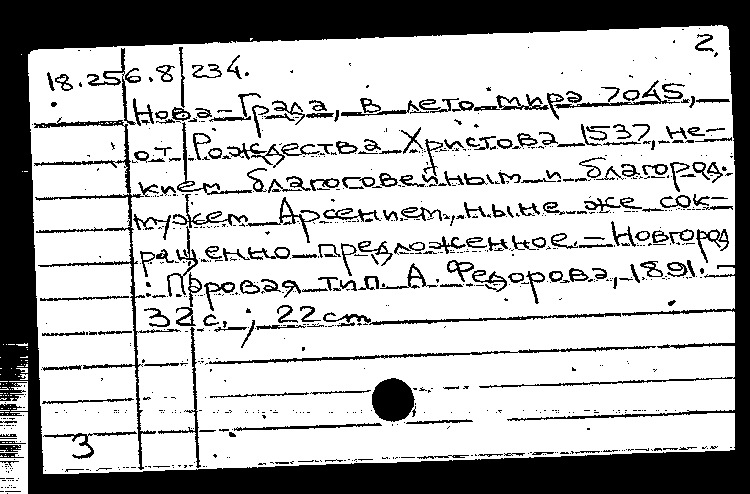 2.
18.256.8.234.
Нова-Града, в лето мира 7045,
от Рождества Христова 1537, не-
кием благоговейным и благород.
мужем Арсением, ныне же сок-
ращенно предложенное. - Новгород
: Паровая тип. А. Федорова, 1891. -
32 с. ; 22 cm
3